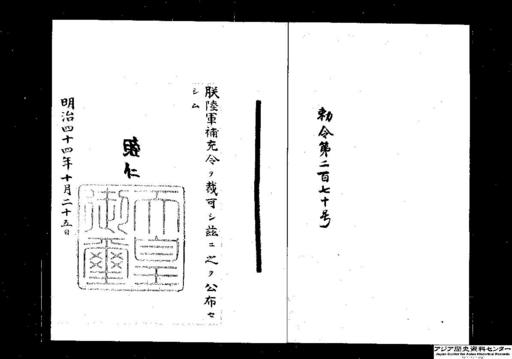 勅令第二百七十号
朕陸軍補充令ヲ裁可シ茲ニ之ヲ公布セ
シム
睦仁
天皇御璽
明治四十四年十月二十五日
アジア歴史資料センター
Japan Center for Asian Historical Records